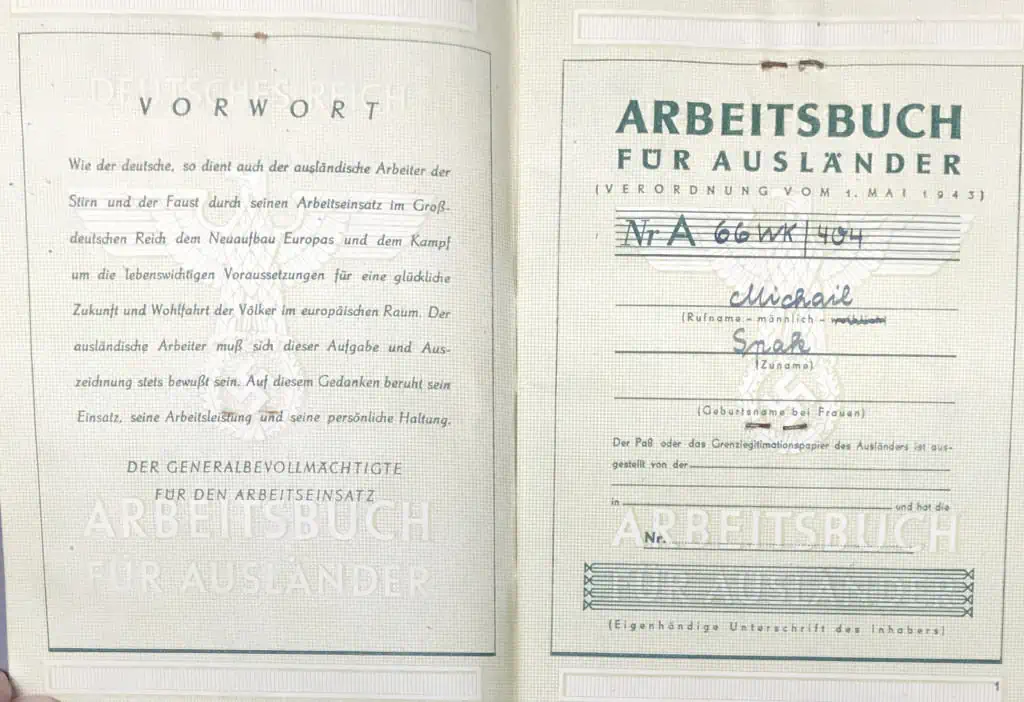 DEUTSCHES REICH
VORWORT
Wie der deutsche, so dient auch der ausländische Arbeiter der
Stirn und der Faust durch seinen Arbeitseinsatz im Groß-
deutschen Reich dem Neuaufbau Europas und dem Kampf
um die lebenswichtigen Voraussetzungen für eine glückliche
Zukunft und Wohlfahrt der Völker im europäischen Raum. Der
ausländische Arbeiter muß sich dieser Aufgabe und Aus-
zeichnung stets bewußt sein. Auf diesem Gedanken beruht sein
Einsatz, seine Arbeitsleistung und seine persönliche Haltung.
DER GENERALBEVOLLMÄCHTIGTE
FÜR DEN ARBEITSEINSATZ
ARBEITSBUCH
FÜR AUSLÄNDER
ARBEITSBUCH
FÜR AUSLÄNDER
(VERORDNUNG VOM 1. MAI 1943)
Nr A 66 WK/404
Michail
(Rufname - männlich - weiblich)
Spak
(Zuname)
(Geburtsname bei Frauen)
Der Paß oder das Grenzlegitimationspapier des Ausländers ist aus-
gestellt von der
in und hat die
ARBEITSBUCH
Nr.
FÜR AUSLÄNDER
(Eigenhändige Unterschrift des Inhabers)
1